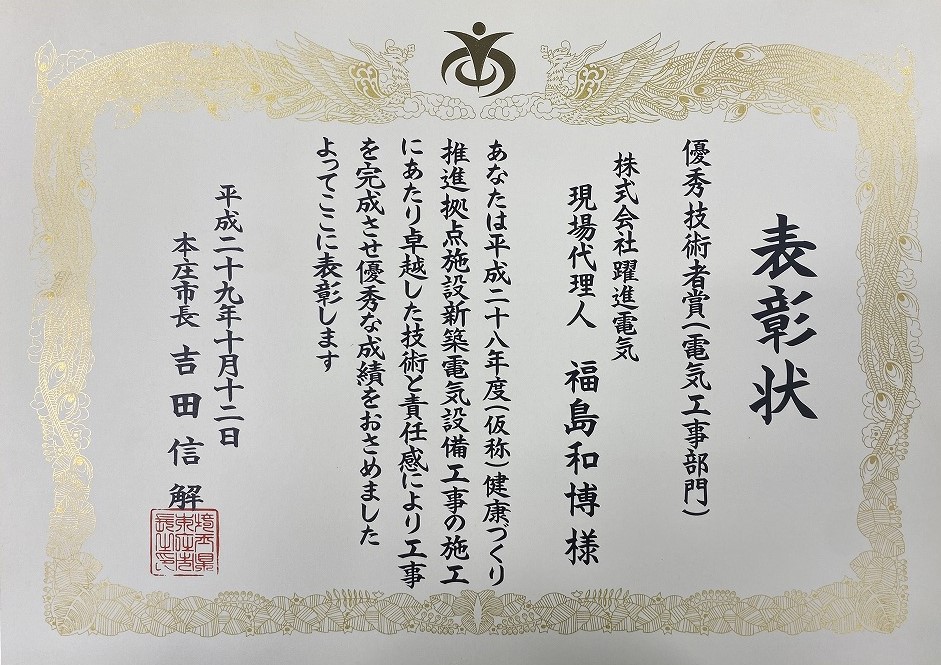 表彰状
優秀技術者賞(電気工事部門)
株式会社躍進電気
現場代理人 福島和博様
あなたは平成二十八年度(仮称)健康づくり
推進拠点施設新築電気設備工事の施工
にあたり卓越した技術と責任感により工事
を完成させ優秀な成績をおさめました
よってここに表彰します
平成二十九年十月十二日
本庄市長 吉田信解
埼玉県
本庄市
長之印